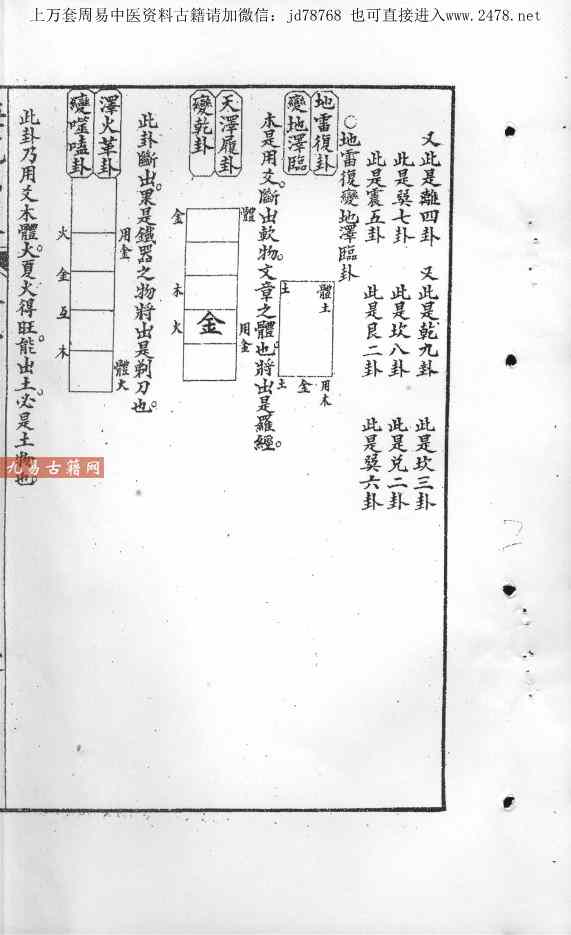 上万套周易中医资料古籍请加微信：jd78768 也可直接进入www.2478.net
又此是離四卦 又此是乾九卦 此是坎三卦
此是巽七卦 此是坎八卦 此是兑二卦
此是震五卦 此是艮二卦 此是巽六卦
○地雷復變地澤臨卦
地雷復卦
變地澤臨
體土
土
用木
金
土
木是用爻。斷出軟物。文章之體也。將出是羅經。
天澤履卦
變乾卦
體
金
木
火
金
用金
此卦斷出。果是鐵器之物將出是剃刀也。
澤火革卦
變噬嗑卦
用金
體火
火
金
互
木
此卦乃用爻木體火。夏火得旺。能出土。必是土物也。
九易古籍网